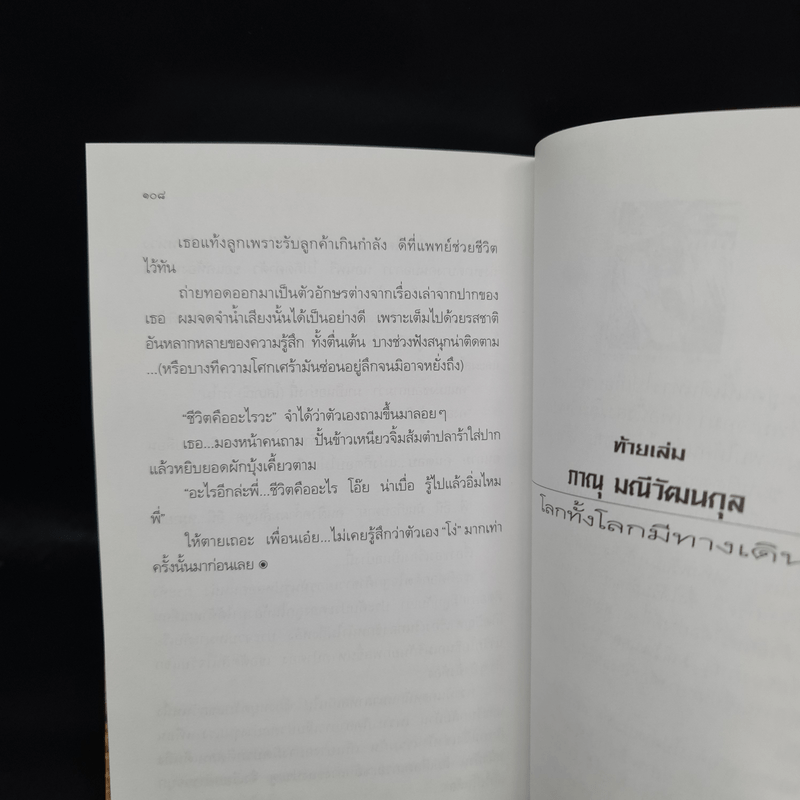 ๑๐๘
เธอแท้งลูกเพราะรับลูกค้าเกินกำลัง ดีที่แพทย์ช่วยชีวิต
ไว้ทัน
ถ่ายทอดออกมาเป็นตัวอักษรต่างจากเรื่องเล่าจากปากของ
เธอ ผมจดจำน้ำเสียงนั้นได้เป็นอย่างดี เพราะเต็มไปด้วยรสชาติ
อันหลากหลายของความรู้สึก ทั้งตื่นเต้น บางช่วงฟังสนุกน่าติดตาม
...(หรือบางทีความโศกเศร้ามันซ่อนอยู่ลึกจนมิอาจหยั่งถึง)
“ชีวิตคืออะไรวะ” จำได้ว่าตัวเองถามขึ้นมาลอยๆ
เธอ...มองหน้าคนถาม ปั้นข้าวเหนียวจิ้มส้มตำปลาร้าใส่ปาก
แล้วหยิบยอดผักบุ้งเคี้ยวตาม
“อะไรอีกล่ะพี่...ชีวิตคืออะไร โอ๊ย น่าเบื่อ รู้ไปแล้วอิ่มไหม
พี่”
ให้ตายเถอะ เพื่อนเอ๋ย...ไม่เคยรู้สึกว่าตัวเอง “โง่” มากเท่า
ครั้งนั้นมาก่อนเลย ◉
ท้ายเล่ม
ภาณุ มณีวัฒนกุล
โลกทั้งโลกมีทางเดิน